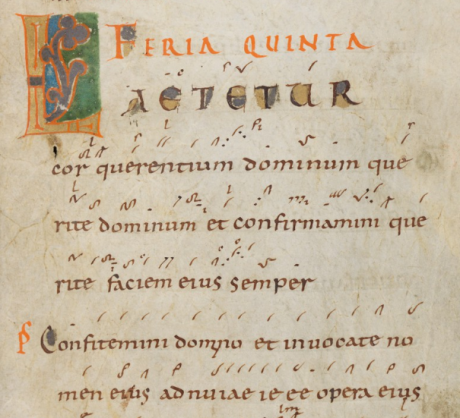 FERIA QUINTA
LAETETUR
cor querentium dominum que
rite dominum et confirmamini que
rite faciem eius semper
PS Confitemini domino et invocate no
men eius adnuiae ie ee opera eius